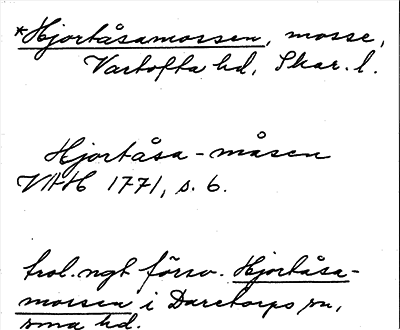 *Hjortåsamossen, mosse,
Vartofta hd, Skar. l.
Hjortåsa-måsen
VHH 1771, s. 6.
trol. ngt försv. Hjortåsa-
mossen i Daretorps sn,
sma hd.